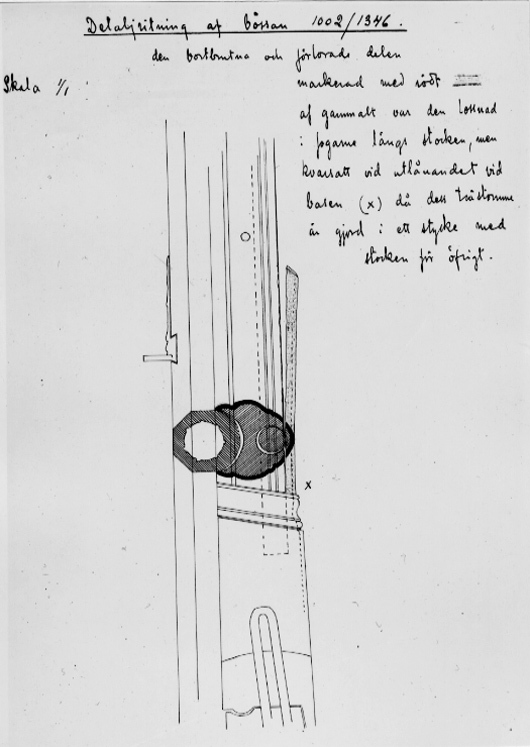 Detaljritning af bössan 1002/1346.
den bortbrutna och förlorade delen
Skala 1/1
markerad med rödt
af gammalt var den lossnad
i fogarne längs stocken, men
kvarsatt vid utlånandet vid
basen (x) då dess trästomme
är gjord i ett stycke med
stocken för öfrigt.
x